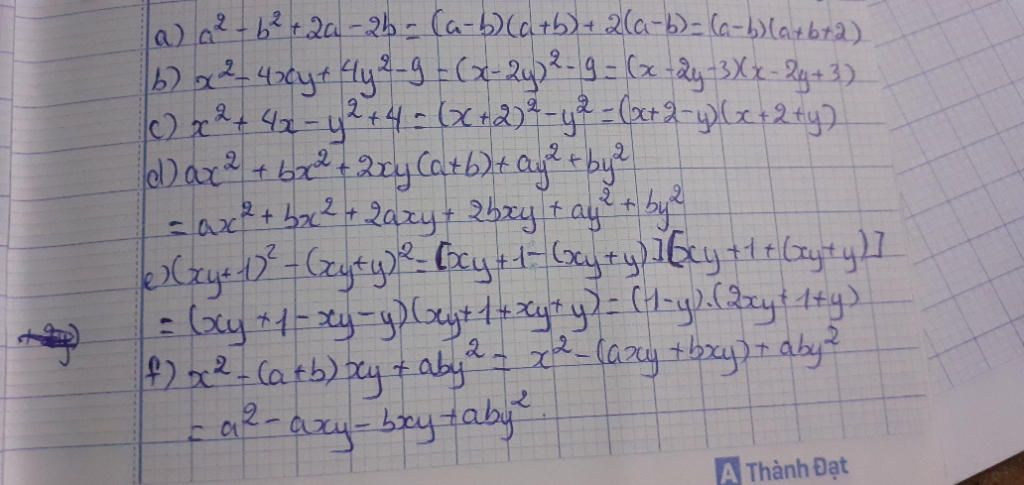 a) a² - b² + 2a - 2b = (a-b)(a+b) + 2(a-b) = (a-b)(a+b+2)
b) x² - 4xy + 4y² - 9 = (x-2y)² - 9 = (x-2y-3)(x-2y+3)
c) x² + 4x - y² + 4 = (x+2)² - y² = (x+2-y)(x+2+y)
d) ax² + bx² + 2xy(a+b) + ay² + by²
= ax² + bx² + 2axy + 2bxy + ay² + by²
e) (xy+1)² - (xy+y)² = [xy+1-(xy+y)][xy+1+(xy+y)]
= (xy+1-xy-y)(xy+1+xy+y) = (1-y).(2xy+1+y)
f) x² - (a+b)xy + aby² = x² - (axy + bxy) + aby²
= a² - axy - bxy + aby².
A Thành Đạt